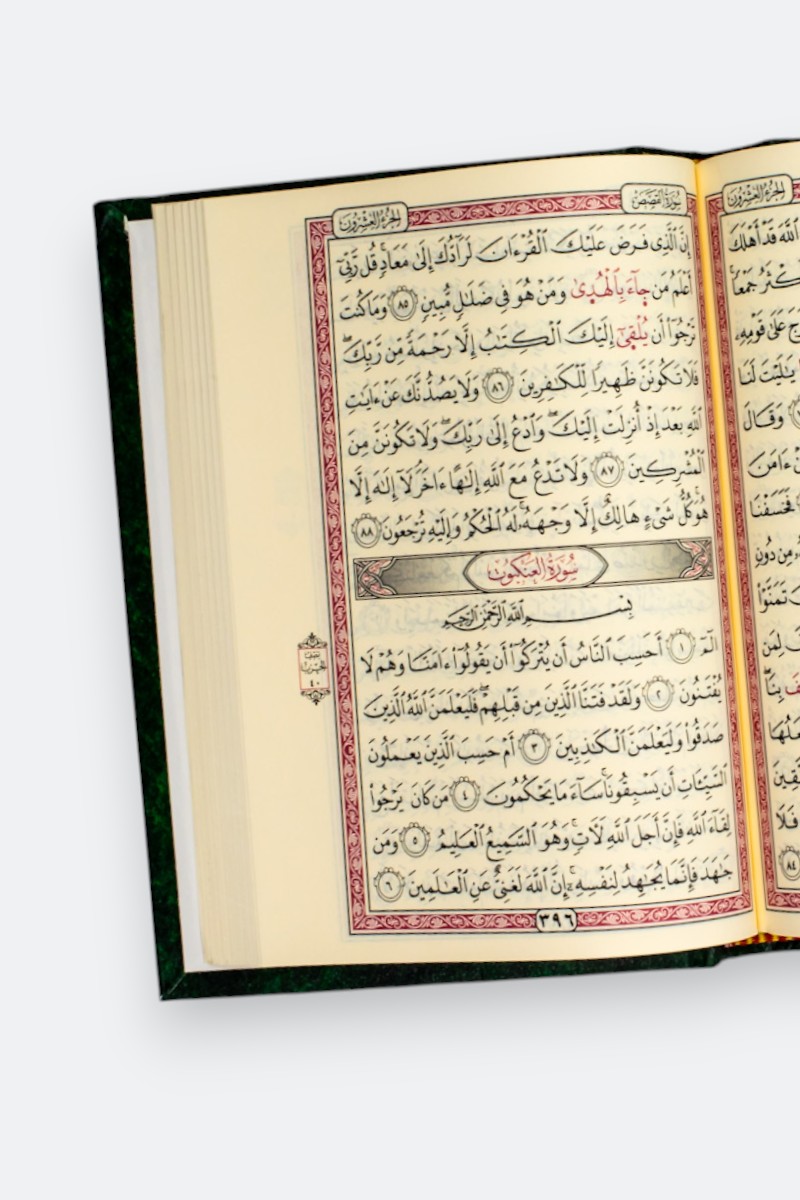 الجزء العشرون
سورة القصص
إِنَّ ٱلَّذِى فَرَضَ عَلَيْكَ ٱلْقُرْءَانَ لَرَآدُّكَ إِلَىٰ مَعَادٍ قُل رَّبِّىٓ
أَعْلَمُ مَن جَآءَ بِٱلْهُدَىٰ وَمَنْ هُوَ فِى ضَلَٰلٍ مُّبِينٍ ٨٥ وَمَا كُنتَ
تَرْجُوٓا۟ أَن يُلْقَىٰٓ إِلَيْكَ ٱلْكِتَٰبُ إِلَّا رَحْمَةً مِّن رَّبِّكَ ۖ
فَلَا تَكُونَنَّ ظَهِيرًا لِّلْكَٰفِرِينَ ٨٦ وَلَا يَصُدُّنَّكَ عَنْ ءَايَٰتِ
ٱللَّهِ بَعْدَ إِذْ أُنزِلَتْ إِلَيْكَ ۖ وَٱدْعُ إِلَىٰ رَبِّكَ ۖ وَلَا تَكُونَنَّ مِنَ
ٱلْمُشْرِكِينَ ٨٧ وَلَا تَدْعُ مَعَ ٱللَّهِ إِلَٰهًا ءَاخَرَ ۘ لَآ إِلَٰهَ إِلَّا
هُوَ ۚ كُلُّ شَىْءٍ هَالِكٌ إِلَّا وَجْهَهُۥ ۚ لَهُ ٱلْحُكْمُ وَإِلَيْهِ تُرْجَعُونَ ٨٨
سورة العنكبوت
بسم الله الرحمن الرحيم
الٓمٓ ١ أَحَسِبَ ٱلنَّاسُ أَن يُتْرَكُوٓا۟ أَن يَقُولُوٓا۟ ءَامَنَّا وَهُمْ لَا
يُفْتَنُونَ ٢ وَلَقَدْ فَتَنَّا ٱلَّذِينَ مِن قَبْلِهِمْ ۖ فَلَيَعْلَمَنَّ ٱللَّهُ ٱلَّذِينَ
صَدَقُوا۟ وَلَيَعْلَمَنَّ ٱلْكَٰذِبِينَ ٣ أَمْ حَسِبَ ٱلَّذِينَ يَعْمَلُونَ
ٱلسَّيِّـَٔاتِ أَن يَسْبِقُونَا ۚ سَآءَ مَا يَحْكُمُونَ ٤ مَن كَانَ يَرْجُوا۟
لِقَآءَ ٱللَّهِ فَإِنَّ أَجَلَ ٱللَّهِ لَءَاتٍ ۚ وَهُوَ ٱلسَّمِيعُ ٱلْعَلِيمُ ٥ وَمَن
جَٰهَدَ فَإِنَّمَا يُجَٰهِدُ لِنَفْسِهِۦٓ ۚ إِنَّ ٱللَّهَ لَغَنِىٌّ عَنِ ٱلْعَٰلَمِينَ ٦
٣٩٦
نصف
الحزب
٤٠
الجزء العشرون
ٱللَّهَ قَدْ أَهْلَكَ
جَمْعًا
عَلَىٰ قَوْمِهِۦ
يَٰلَيْتَ لَنَا
وَقَالَ
ءَامَنَ
فَخَسَفْنَا
مِن دُونِ
تَمَنَّوْا۟
لِمَن
بِنَا
فَلَا
٨٤